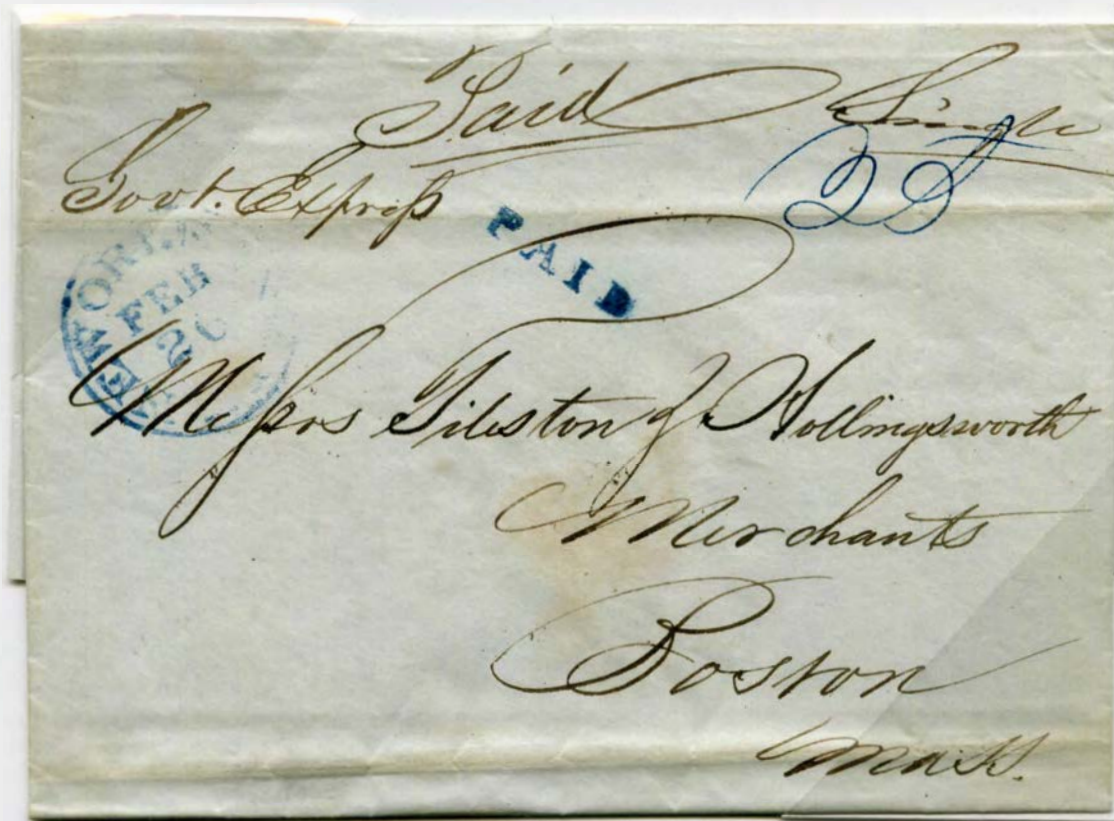 Paid Single
Govt. Expreſs
25
PAID
NEW ORLEANS
FEB
20
Meſsrs Tileston & Hollingsworth
Merchants
Boston
Mass.